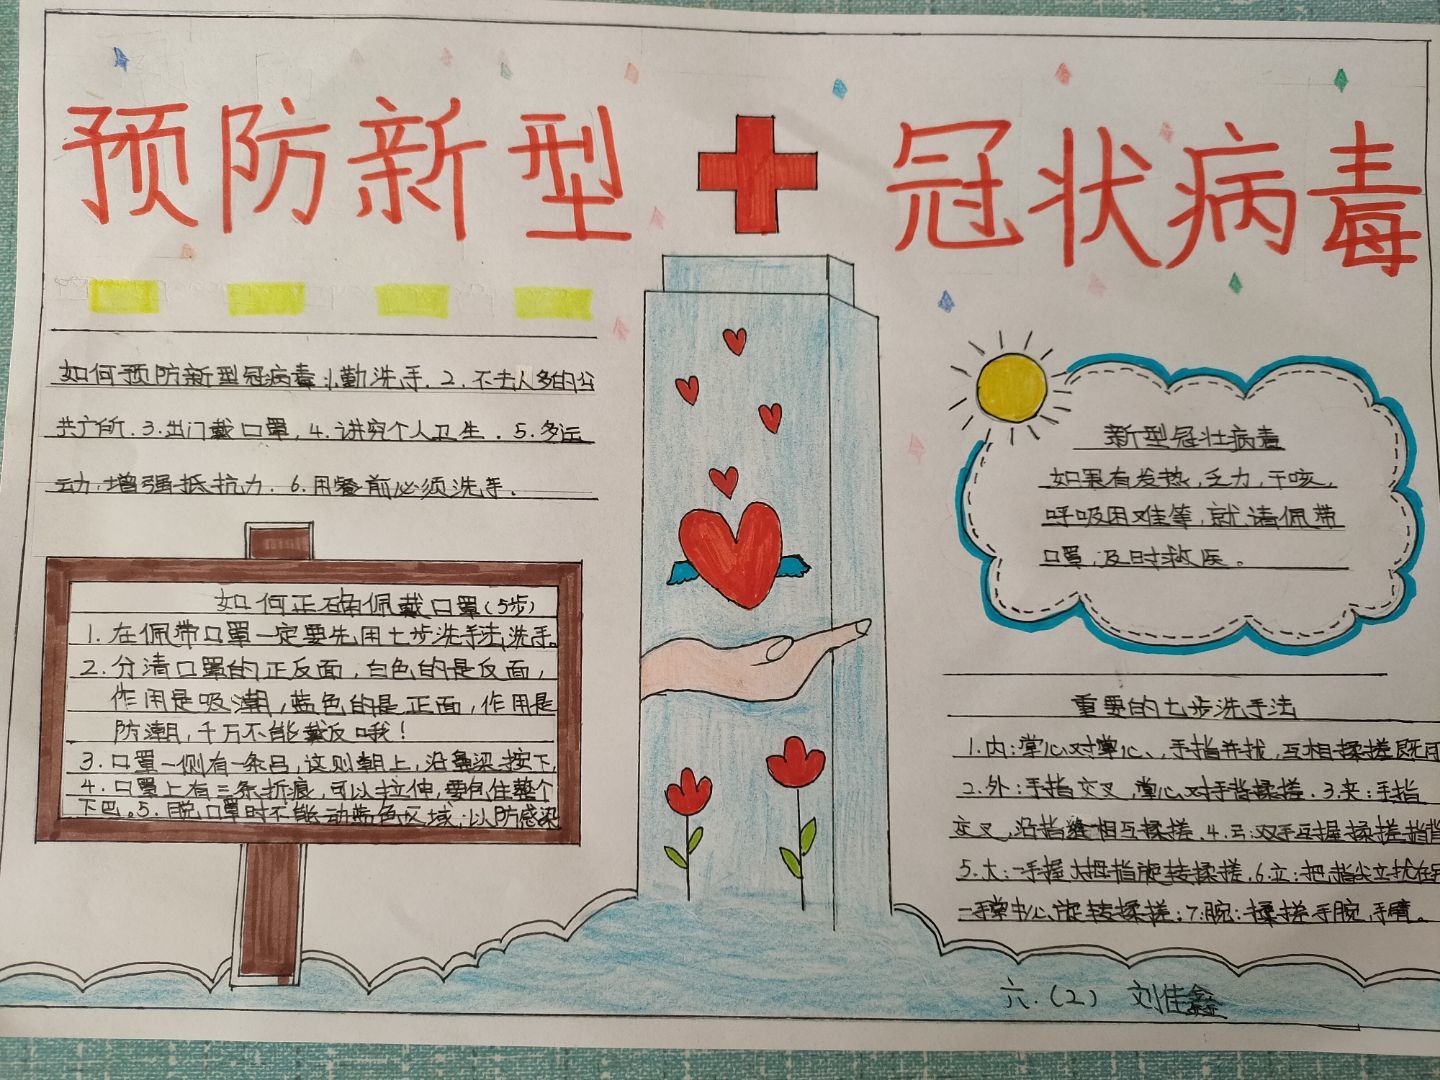 预防新型冠状病毒
如何预防新型冠病毒:1.勤洗手.2.不去人多的公
共场所.3.出门戴口罩,4.讲究个人卫生.5.多运
动,增强抵抗力.6.用餐前必须洗手.
如何正确佩戴口罩(5步)
1.在佩带口罩一定要先用七步洗手法洗手。
2.分清口罩的正反面,白色的是反面,
作用是吸潮,蓝色的是正面,作用是
防潮,千万不能戴反哦!
3.口罩一侧有一条吕,这则朝上,沿鼻梁按下,
4.口罩上有三条折痕,可以拉伸,要包住整个
下巴。5.脱口罩时不能动蓝色区域,以防感染
新型冠壮病毒
如果有发热,乏力,干咳,
呼吸困难等,就请佩带
口罩,及时救医。
重要的七步洗手法
1.内:掌心对掌心,手指并拢,互相揉搓既可
2.外:手指交叉,掌心对手背揉搓.3.夹:手指
交叉,沿指缝相互揉搓.4.弓:双手互握揉搓指背
5.大:一手握大拇指旋转揉搓.6.立:把指尖立拢在另
一手掌中心旋转揉搓;7.腕:揉搓手腕,手臂。
六.(2) 刘佳鑫